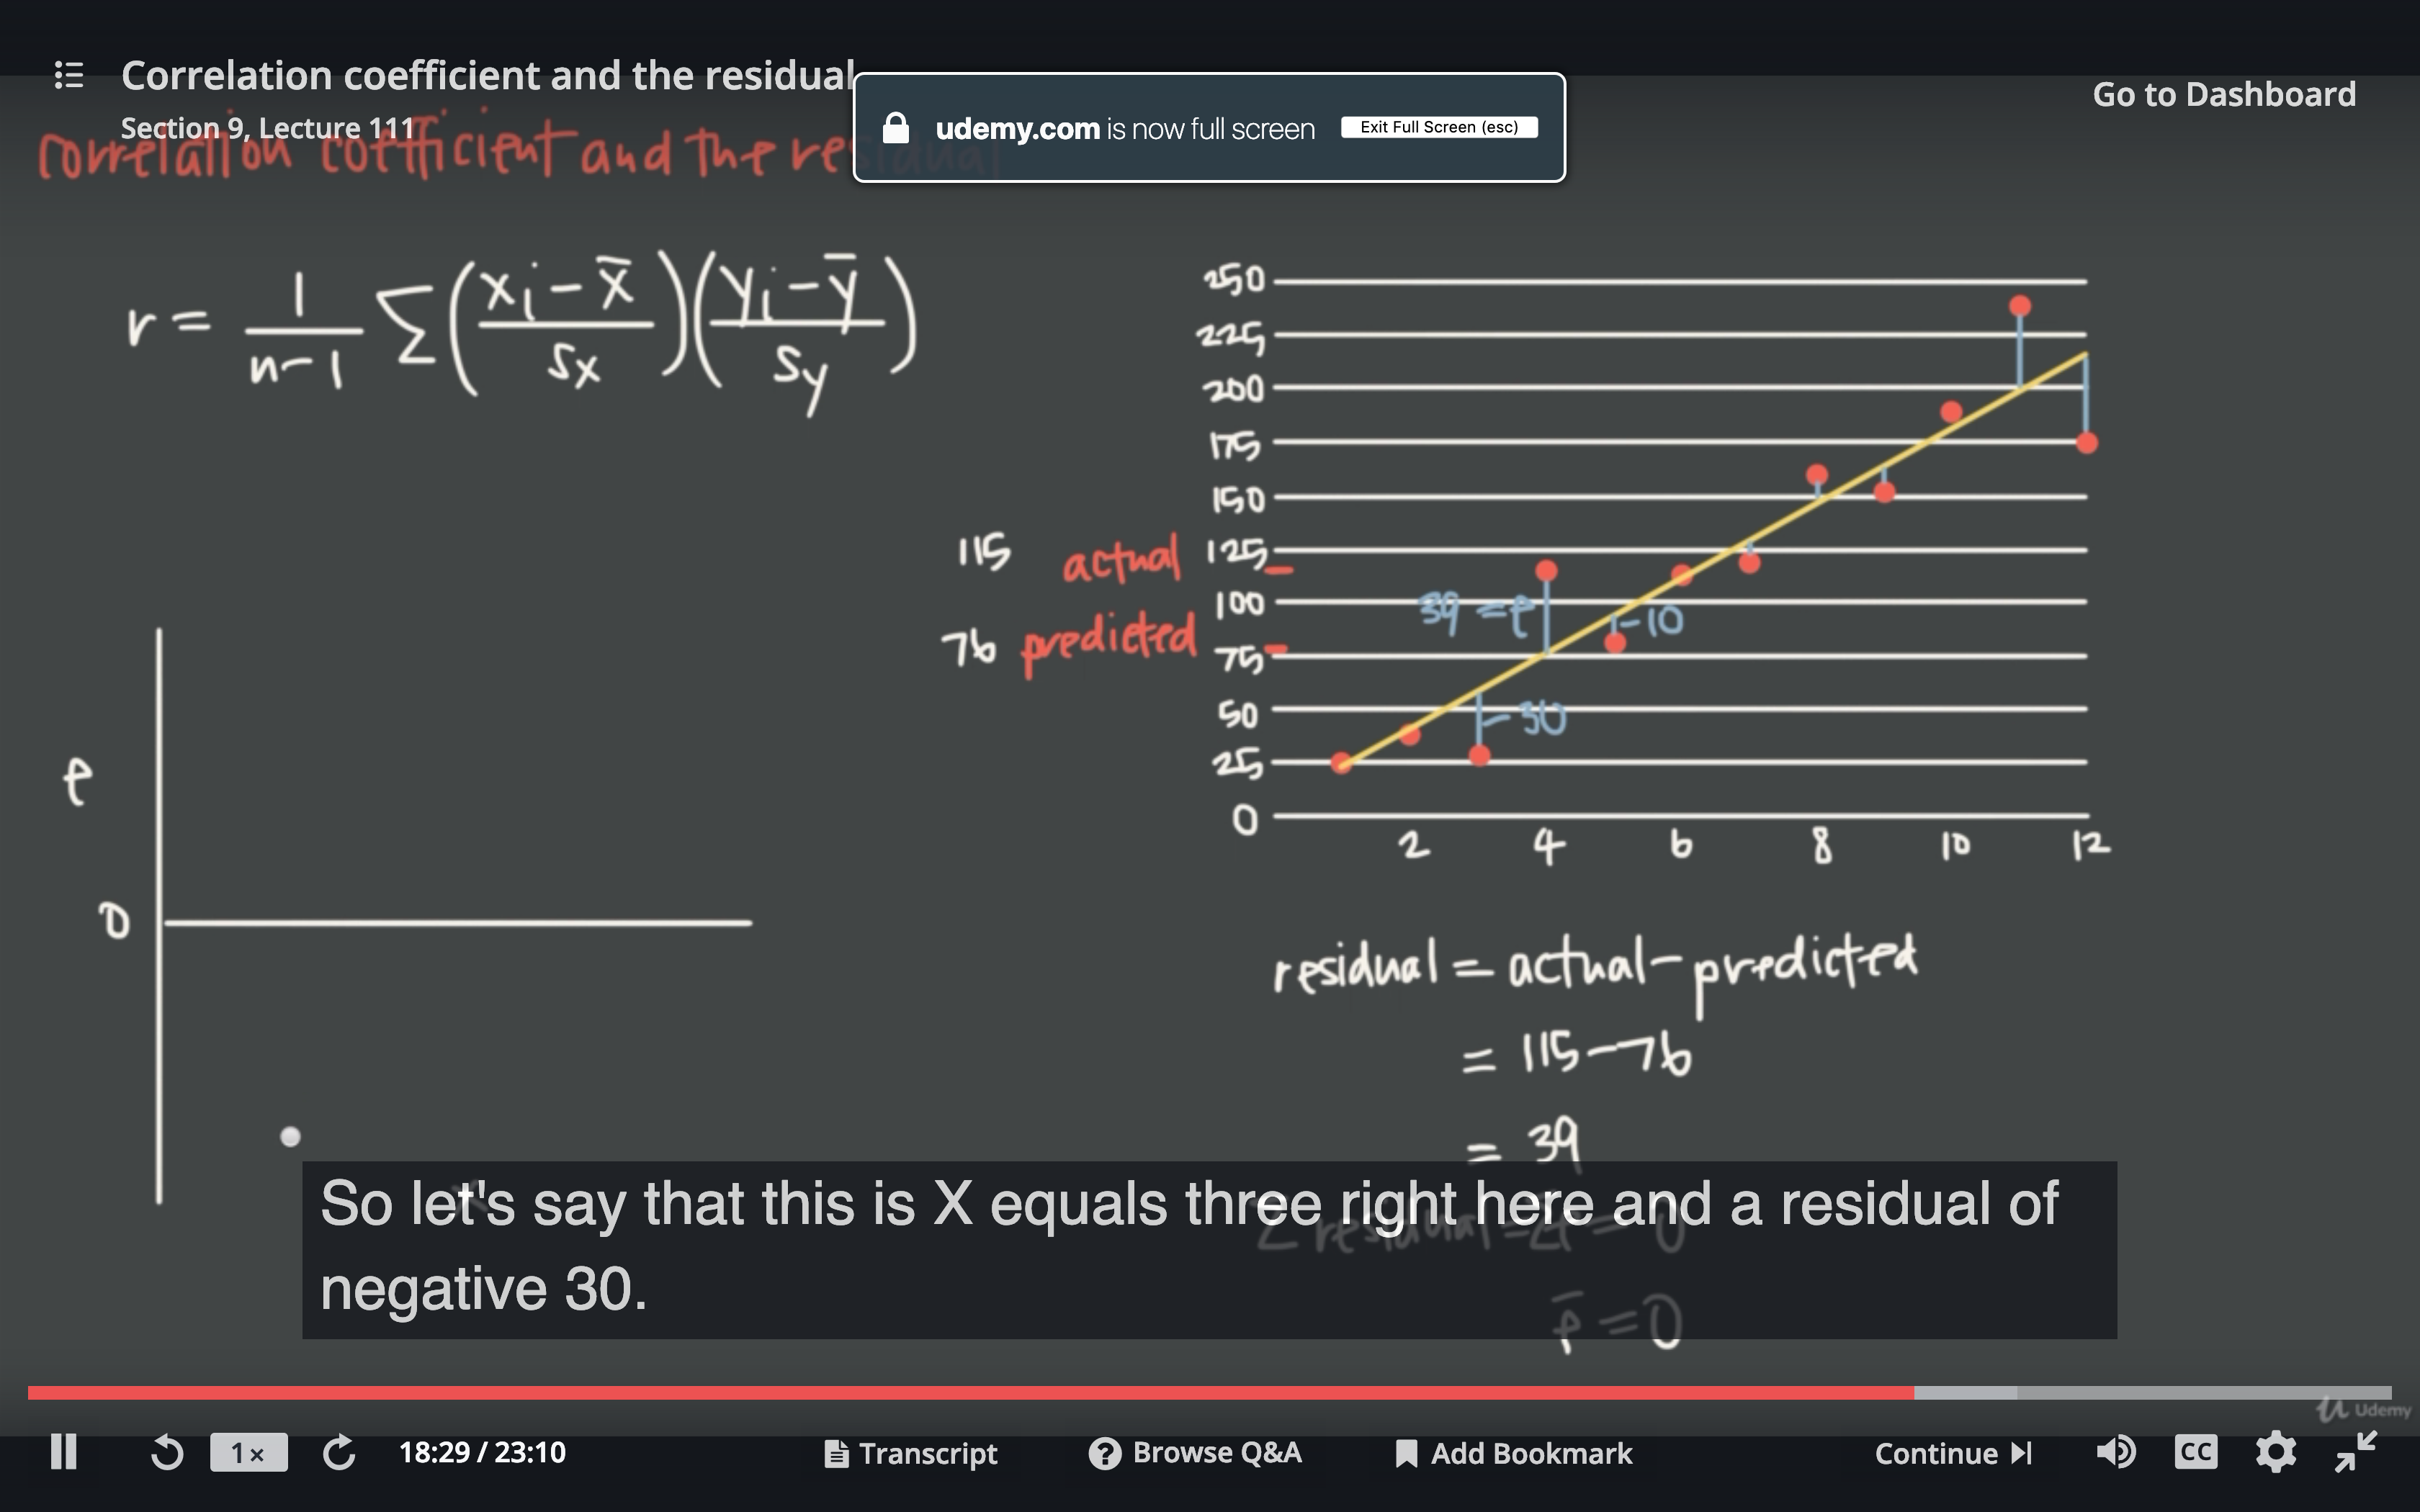 Correlation coefficient and the residual
Section 9, Lecture 111
udemy.com is now full screen
Exit Full Screen (esc)
Go to Dashboard
correlation coefficient and the residual
r = 1/(n-1) Σ((xi - x̄)/sx)((yi - ȳ)/sy)
250
225
200
175
150
125
100
75
50
25
0
2 4 6 8 10 12
115 actual
76 predicted
39 = e
-10
-30
e
0
x
residual = actual - predicted
= 115 - 76
= 39
Σ residual = Σe = 0
ē = 0
So let's say that this is X equals three right here and a residual of
negative 30.
Udemy
1×
18:29 / 23:10
Transcript
Browse Q&A
Add Bookmark
Continue
CC